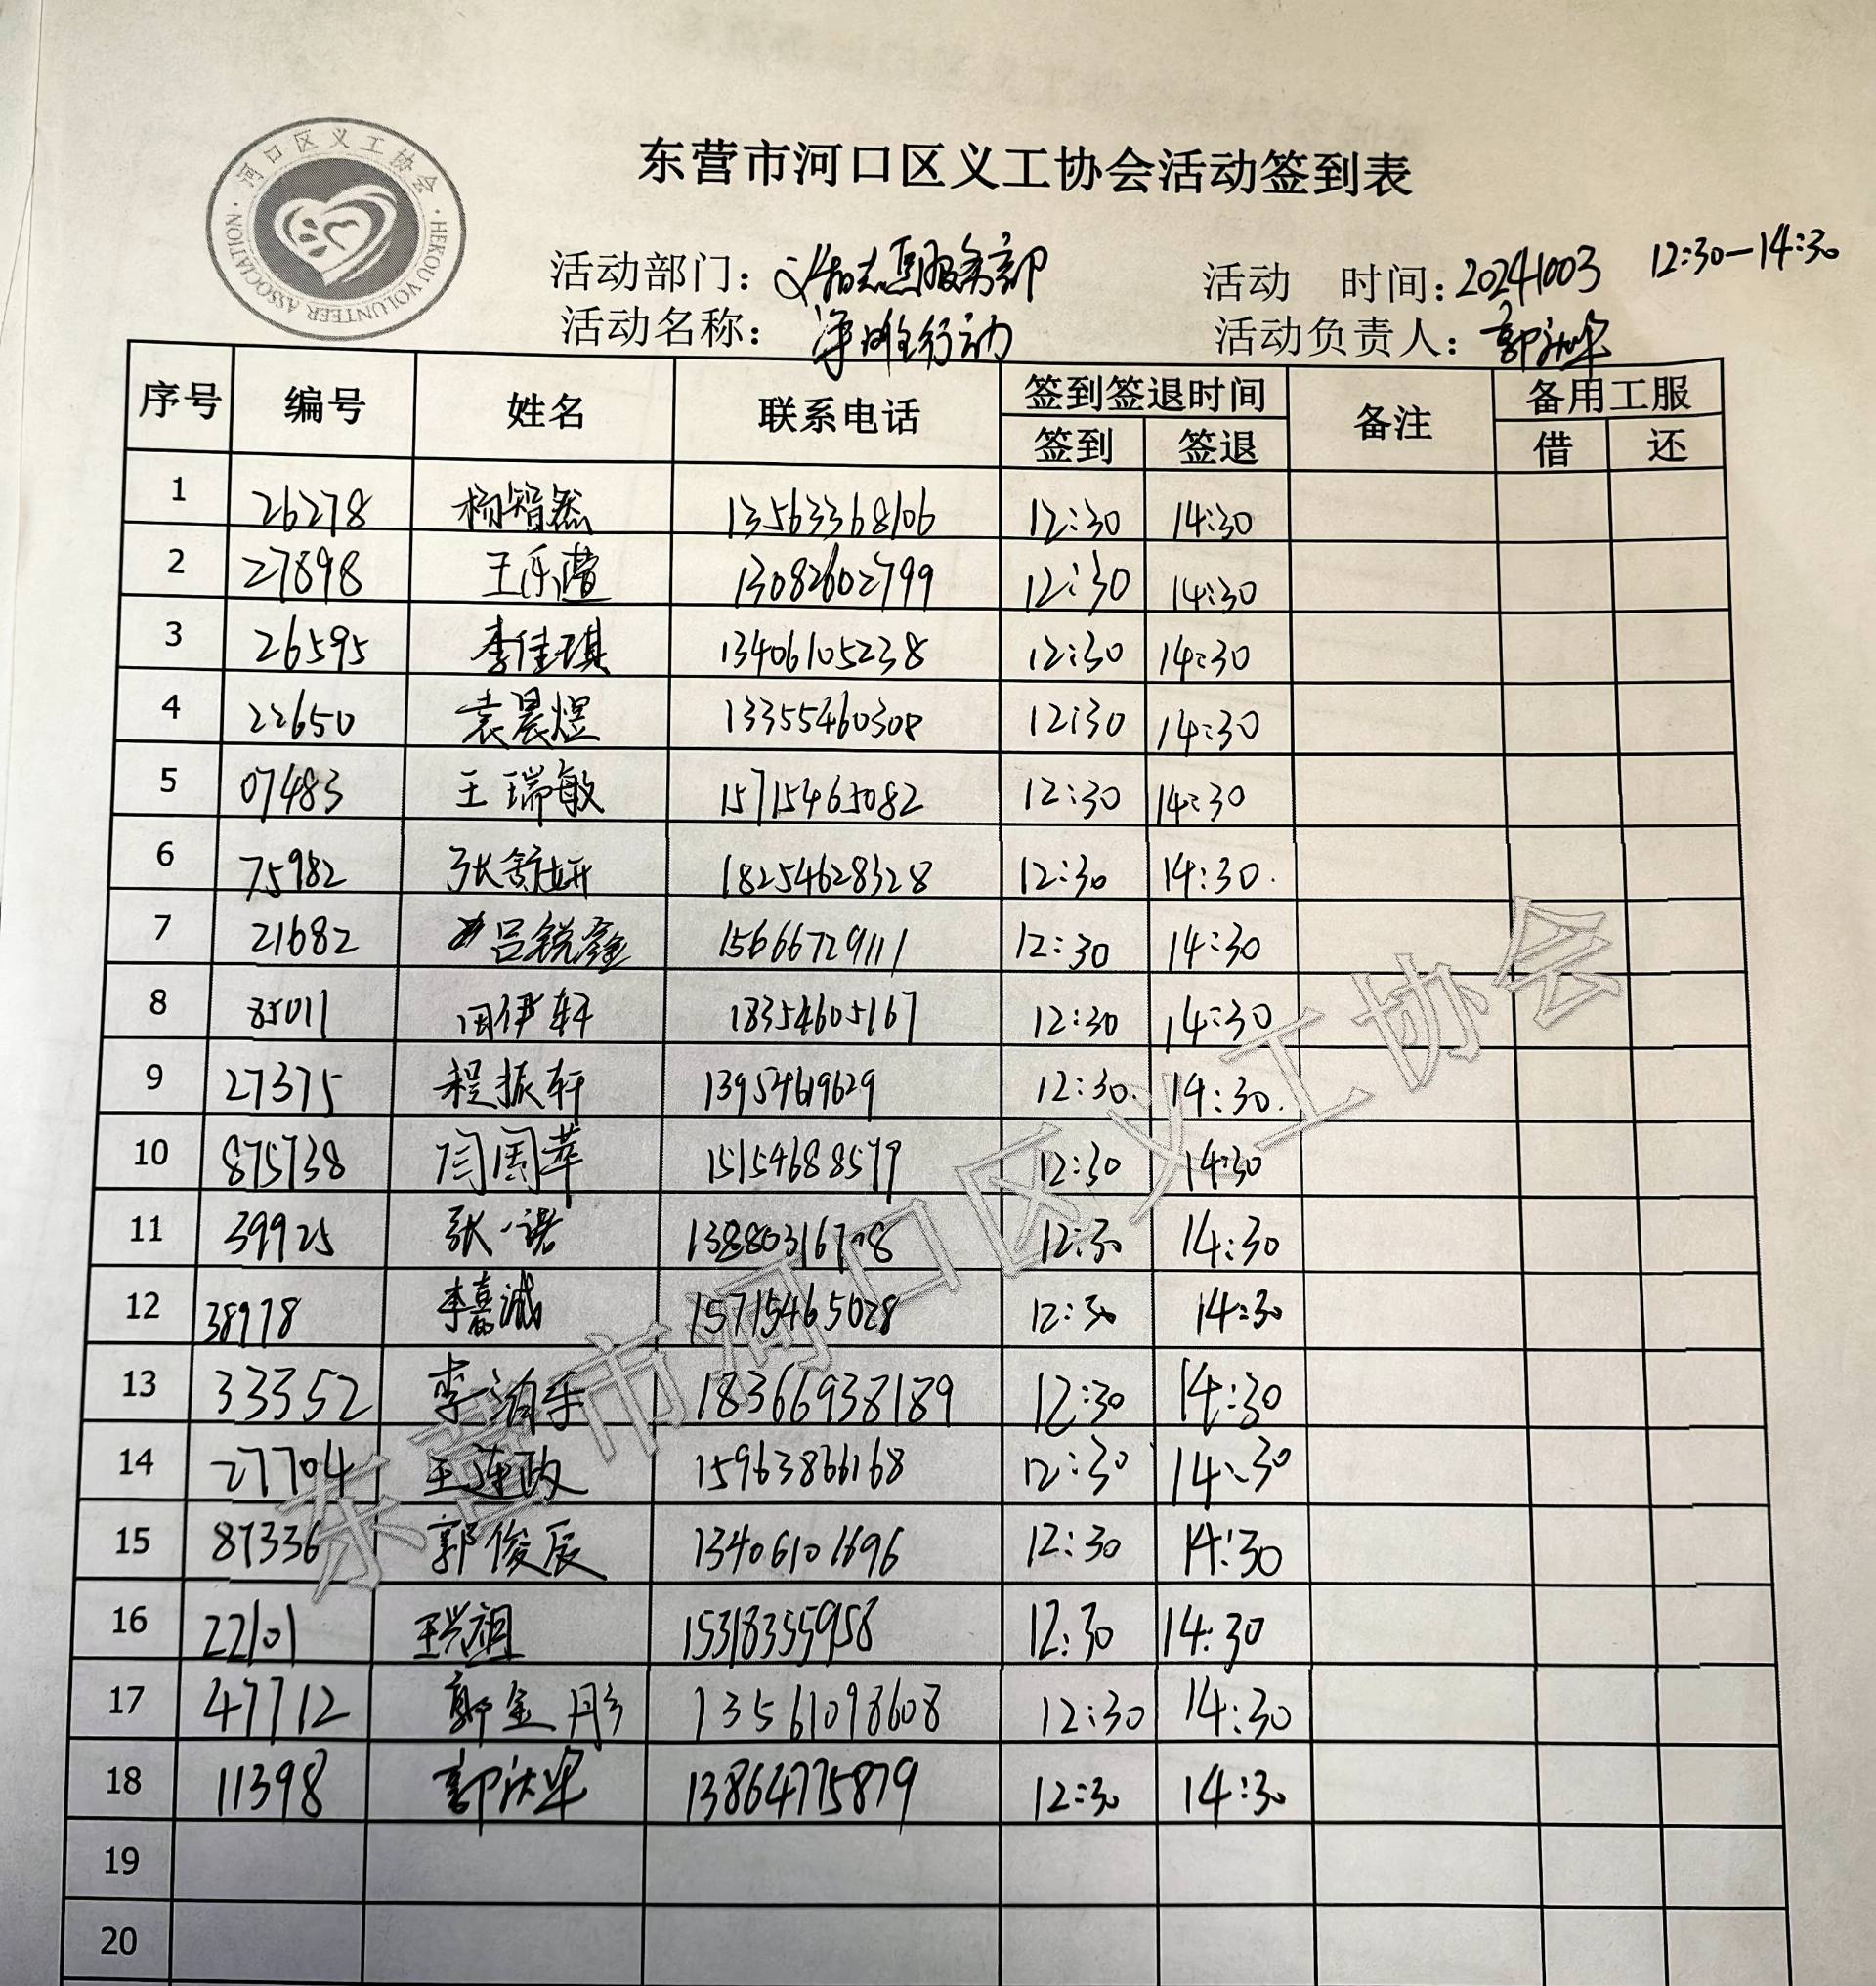 河口区义工协会
HEKOU VOLUNTEER ASSOCIATION
东营市河口区义工协会活动签到表
活动部门： 服务部 活动 时间：20241003 12:30—14:30
活动名称： 净滩行动 活动负责人：
序号 编号 姓名 联系电话 签到签退时间 备注 备用工服
签到 签退 借 还
1 26278 杨智然 13563368106 12:30 14:30
2 27898 王乐萱 13082602799 12:30 14:30
3 26595 李佳琪 13406105238 12:30 14:30
4 22650 袁晨煜 13355460308 12:30 14:30
5 07483 王瑞敏 15715465082 12:30 14:30
6 75982 张舒妍 18254628328 12:30 14:30.
7 21682 吕锐鑫 15666729111 12:30 14:30
8 85011 田伊轩 18354605167 12:30 14:30
9 27375 程振轩 13954619629 12:30. 14:30.
10 875738 闫国苹 15154688579 12:30 14:30
11 39925 张一诺 12:30 14:30
12 38978 李嘉诚 15715465028 12:30 14:30
13 33352 李泊乐 18366938189 12:30 14:30
14 27704 王连政 15963866168 12:30 14:30
15 87336 郭俊辰 13406101696 12:30 14:30
16 22101 王兴祖 15318355958 12:30 14:30
17 47712 郭金彤 13561098608 12:30 14:30
18 11398 13864775879 12:30 14:30
19
20
东营市河口区义工协会